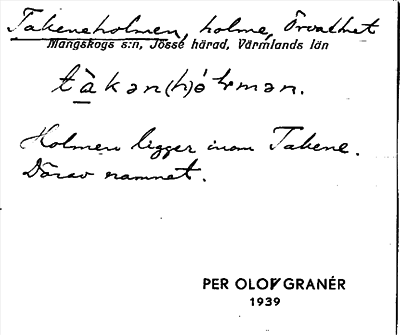 Takeneholmen, holme, Örvattnet
Mangskogs s:n, Jösse härad, Värmlands län
Holmen ligger inom Takene.
Därav namnet.
PER OLOF GRANÉR
1939